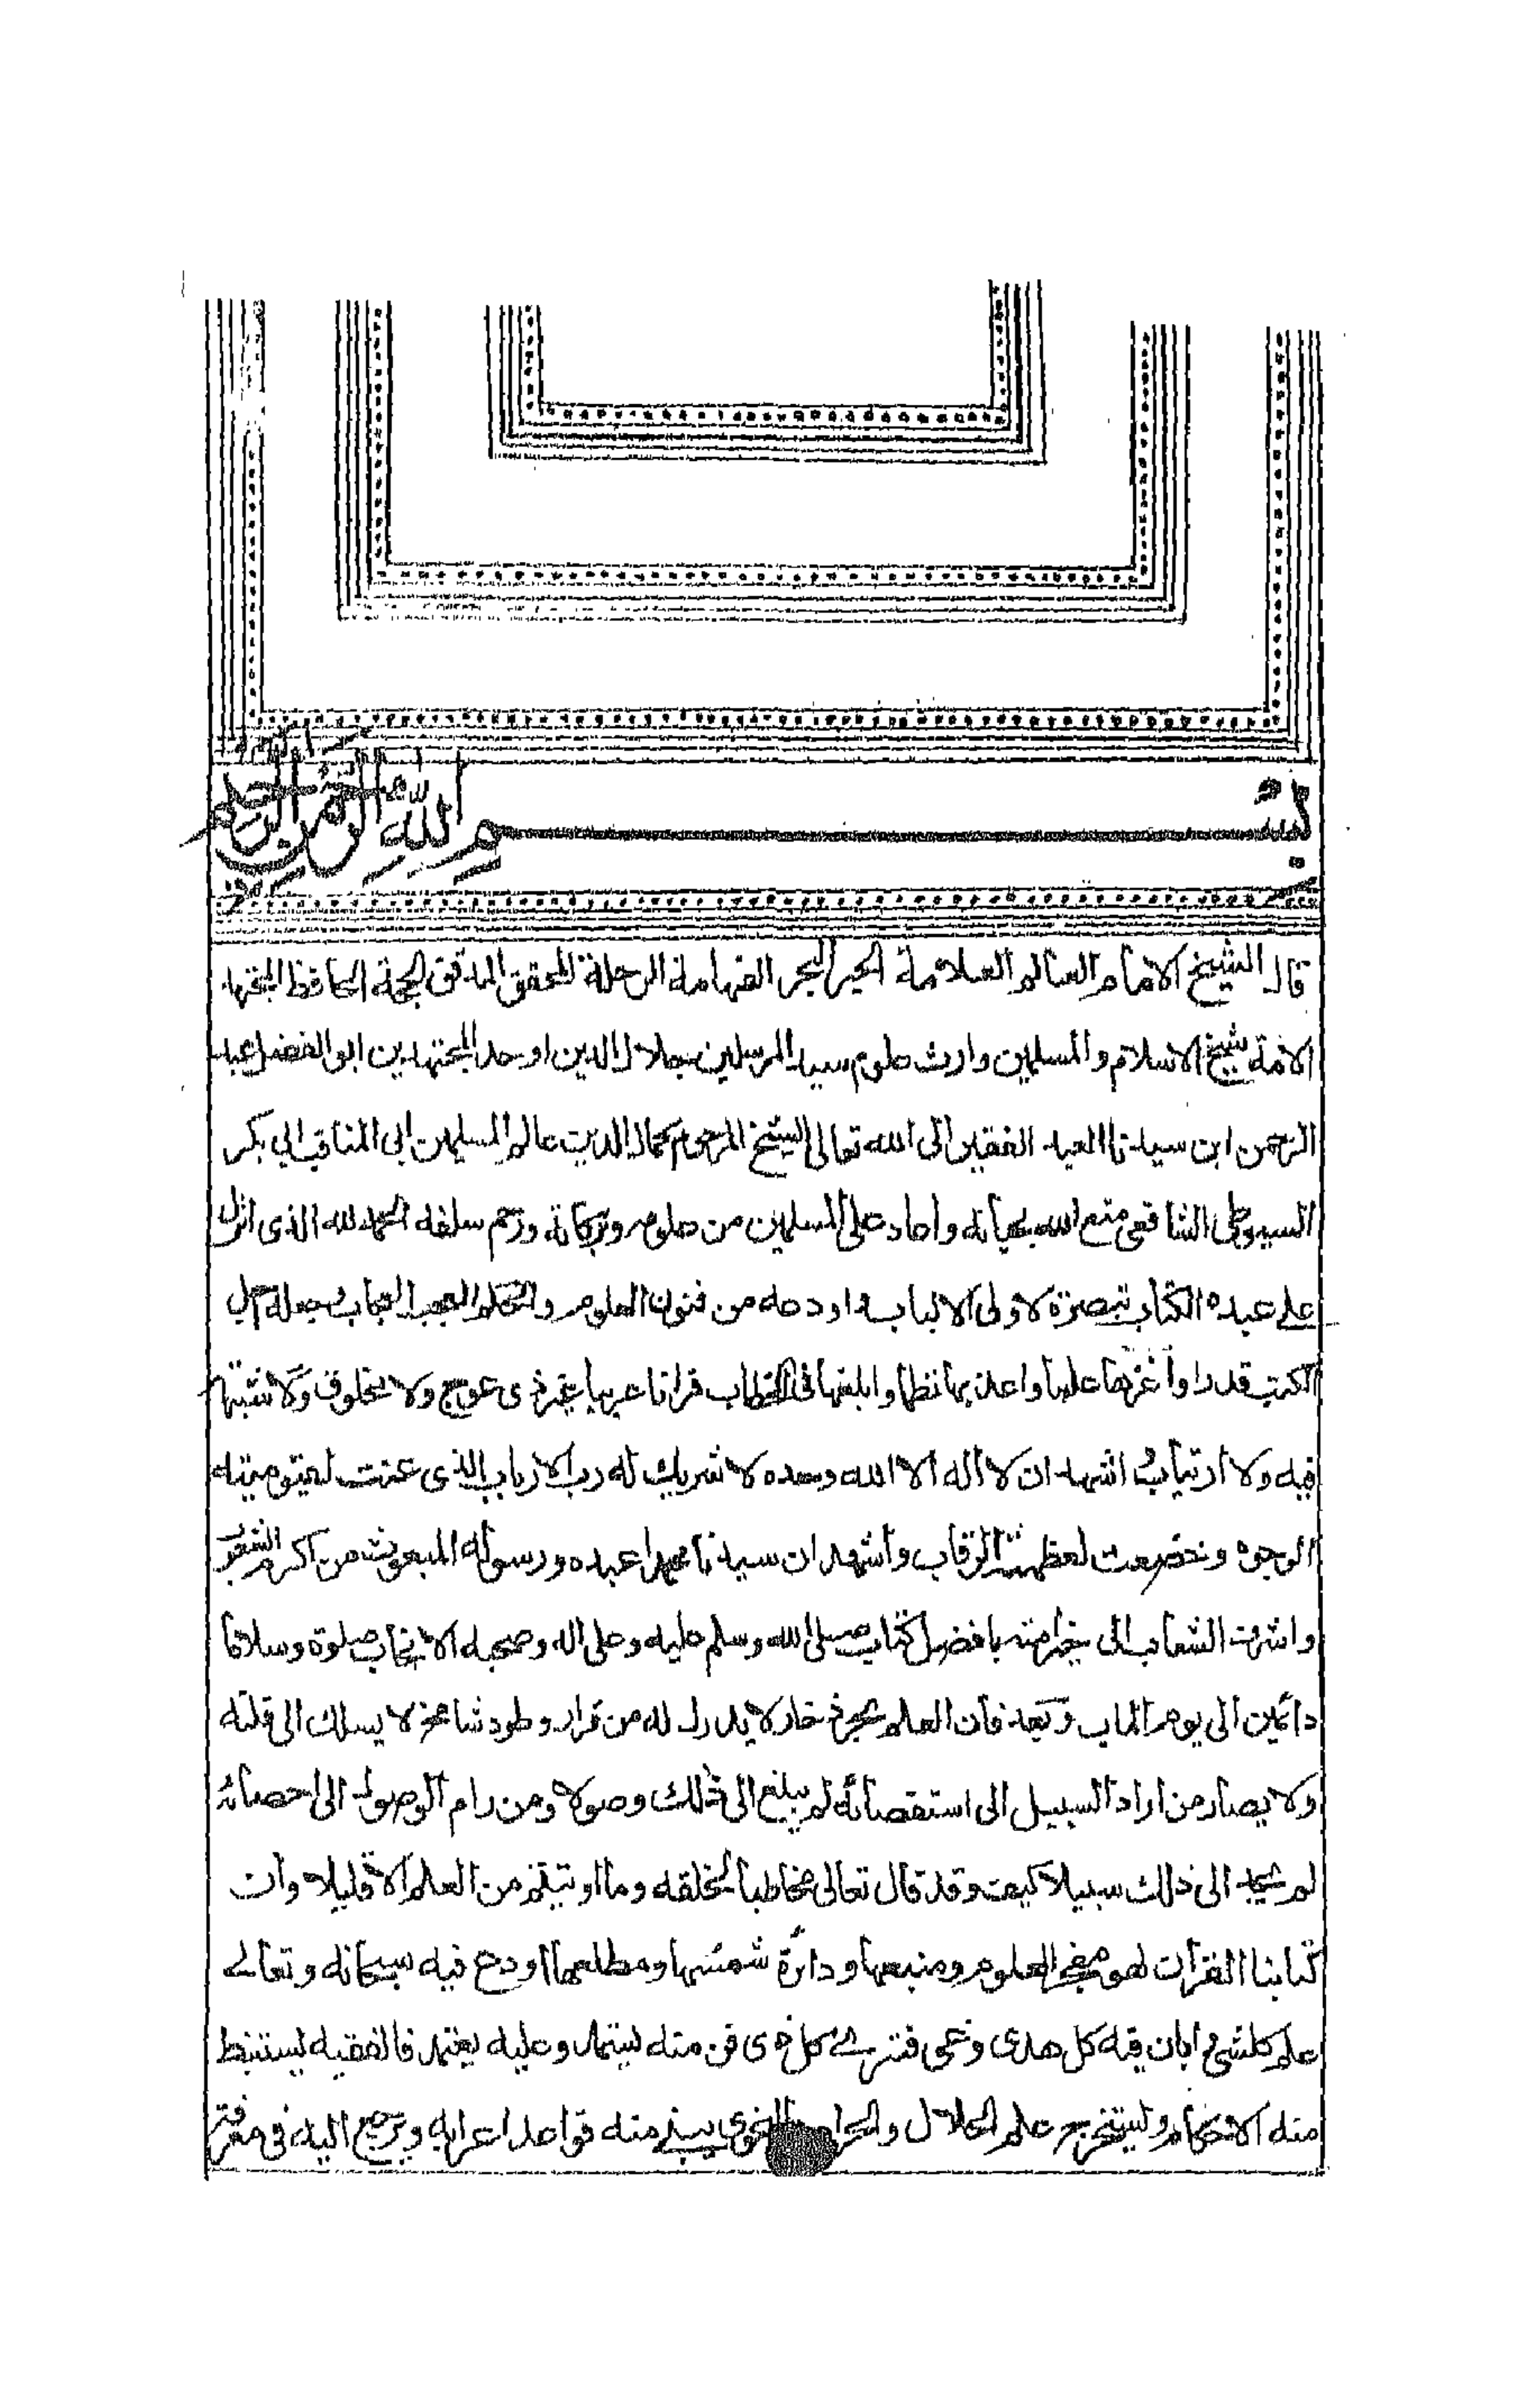 بسم الله الرحمن الرحيم
قال الشيخ الامام العالم العلامة الحبر البحر الفهامة الرحلة المحقق المدقق الحجة الحافظ المجتهد
الامة شيخ الاسلام والمسلمين وارث علوم سيد المرسلين جلال الدين اوحد المجتهدين ابو الفضل عبد
الرحمن ابن سيدنا العبد الفقير الى الله تعالى الشيخ المرحوم كمال الدين عالم المسلمين ابى المناقب ابي بكر
السيوطى الشافعى متع الله بحياته واعاد على المسلمين من علومه وبركاته ورحم سلفه الحمد لله الذى انزل
على عبده الكتاب تبصرة لاولى الالباب واودعه من فنون العلوم والحكم العجب العجاب وجعله اجل
الكتب قدرا واغزرها علما واعذبها نظما وابلغها فى الخطاب قرانا عربيا غير ذى عوج ولا مخلوق ولا شبهة
فيه ولا ارتياب اشهد ان لا اله الا الله وحده لا شريك له رب الارباب الذى عنت لقيوميته
الوجوه وخضعت لعظمته الرقاب واشهد ان سيدنا محمدا عبده ورسوله المبعوث من اكرم الشعوب
واشرف الشعاب الى خير امة بافضل كتاب صلى الله وسلم عليه وعلى اله وصحبه الانجاب صلوة وسلاما
دائمين الى يوم الماب وبعد فان العلم بحر زخار لا يدرك له من قرار وطود شامخ لا يسلك الى قلته
ولا يصار من اراد السبيل الى استقصائه لم يبلغ الى ذلك وصولا ومن رام الوصول الى احصائه
لم يجد الى ذلك سبيلا كيف وقد قال تعالى مخاطبا لخلقه وما اوتيتم من العلم الا قليلا وان
كتابنا القران لهو مفجر العلوم ومنبعها ودائرة شمسها ومطلعها اودع فيه سبحانه وتعالى
علم كل شئ وابان فيه كل هدى وغى فترى كل ذى فن منه يستمد وعليه يعتمد فالفقيه يستنبط
منه الاحكام ويستخرج علم الحلال والحرام والنحوى يبنى منه قواعد اعرابه ويرجع اليه فى معرفة